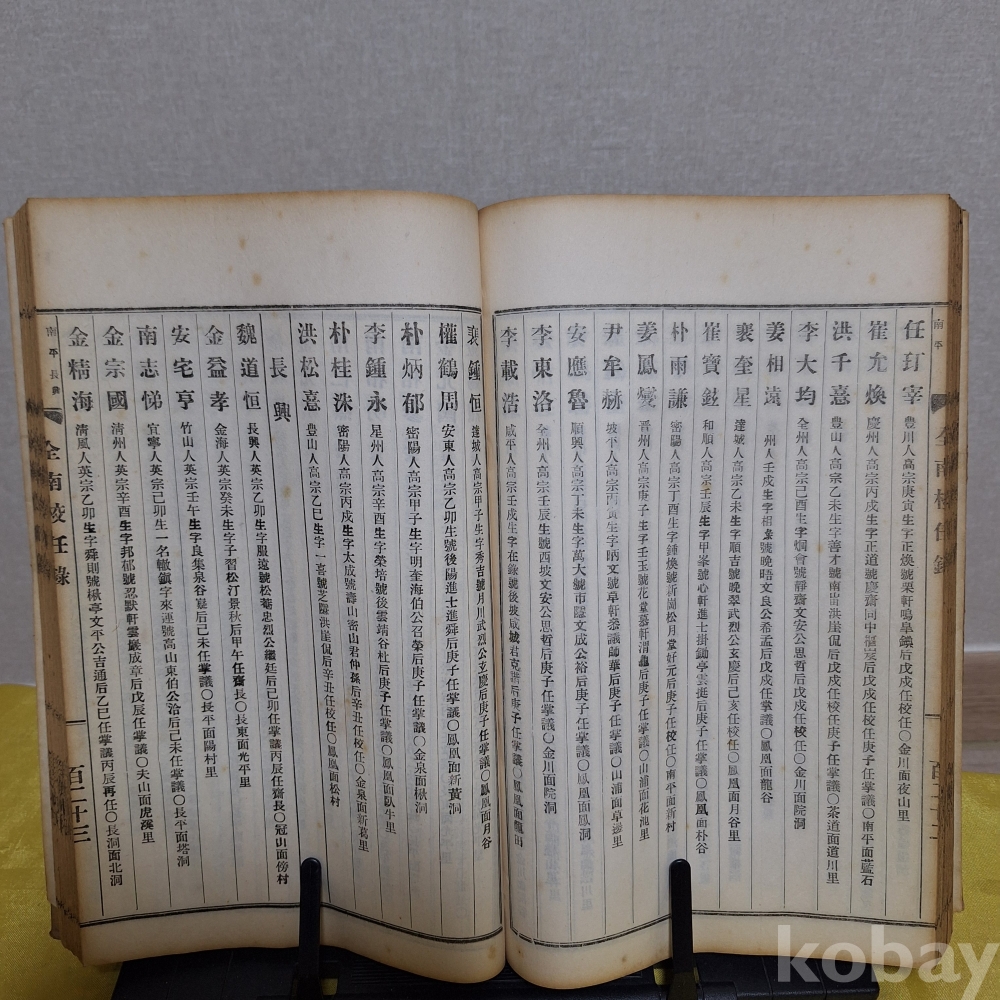 任玎宰 豊川人高宗庚寅生字正煥號栗軒鳴皐 后戊戌任校任〇金川面夜山里
崔允煥 慶州人高宗丙戌生字正道號慶齋 后戊戌任校任庚子任掌議〇南平面藍石
洪千憙 豊山人高宗乙未生字善才號南 洪崖侃后戊戌任校任庚子任掌議〇茶道面道川里
李大均 全州人高宗己酉生字炯會號靜齋文安公思哲后戊戌任校任〇金川面院洞
姜相遠 州人壬戌生字相象號晚晤文良公希孟后戊戌任掌議〇鳳凰面龍谷
裵奎星 達城人高宗乙未生字順吉號晚翠武烈公玄慶后己亥任校任〇鳳凰面月谷里
崔寶 和順人高宗壬辰生字甲峯號心軒進士掛鋤亭雲挺后庚子任掌議〇鳳凰面朴谷
朴雨謙 密陽人高宗丁酉生字鍾煥號新 松月堂好元后庚子任校任〇南平面新村
姜鳳燮 晋州人高宗庚子生字壬玉號花堂慕軒渭龜后庚子任掌議〇山浦面花池里
尹牟赫 坡平人高宗丙寅生字昞文號阜軒叅議師華后庚子任掌議〇山浦面阜邊里
安應魯 順興人高宗丁未生字萬大號市隱文成公裕后庚子任掌議〇鳳凰面 洞
李東洛 全州人高宗壬辰生號西坡文安公思哲后庚子任掌議〇金川面院洞
李載浩 咸平人高宗壬戌生字在 號後坡咸城君克諧后庚子任掌議〇鳳凰面龍田
裵鍾恒 達城人高宗甲子生字秀吉號月川武烈公玄慶后庚子任掌議〇鳳凰面月谷
權鶴周 安東人高宗乙卯生號後陽進士進舜后庚子任掌議〇鳳凰面新黃洞
朴炳郁 密陽人高宗甲子生字明奎海伯公召榮后庚子任掌議〇金泉面楸洞
李鍾永 星州人高宗辛酉生字榮培號後雲靖谷杜后庚子任掌議〇鳳凰面臥牛里
朴桂洙 密陽人高宗丙戌生字太成號壽山密山君仲孫后辛丑任校任〇金泉面新葛里
洪松憙 豊山人高宗乙巳生字一喜號芝隱洪崖侃后辛丑任校任〇鳳凰面松村
長興
魏道恒 長興人英宗乙卯生字服遠號松菴忠烈公繼廷后己卯任掌議丙辰任齋長〇冠山面傍村
金益孝 金海人英宗癸未生字子習松汀景秋后甲午任齋長〇長東面光平里
安宅亨 竹山人英宗壬午生字良集泉谷 后己未任掌議〇長平面塔洞
南志悌 宜寧人英宗己卯生一名轍鎭字來連號高山東伯公洽后己未任掌議〇長平面陽村里
金宗國 清州人英宗辛酉生字邦郁號忍默軒雲巖成章后戊辰任掌議〇夫山面虎溪里
金精海 清風人英宗乙卯生字舜則號楸亭文平公吉通后乙巳任掌議丙辰再任〇長洞面北洞
全南校任錄
百二十三
南平 長興
kobay